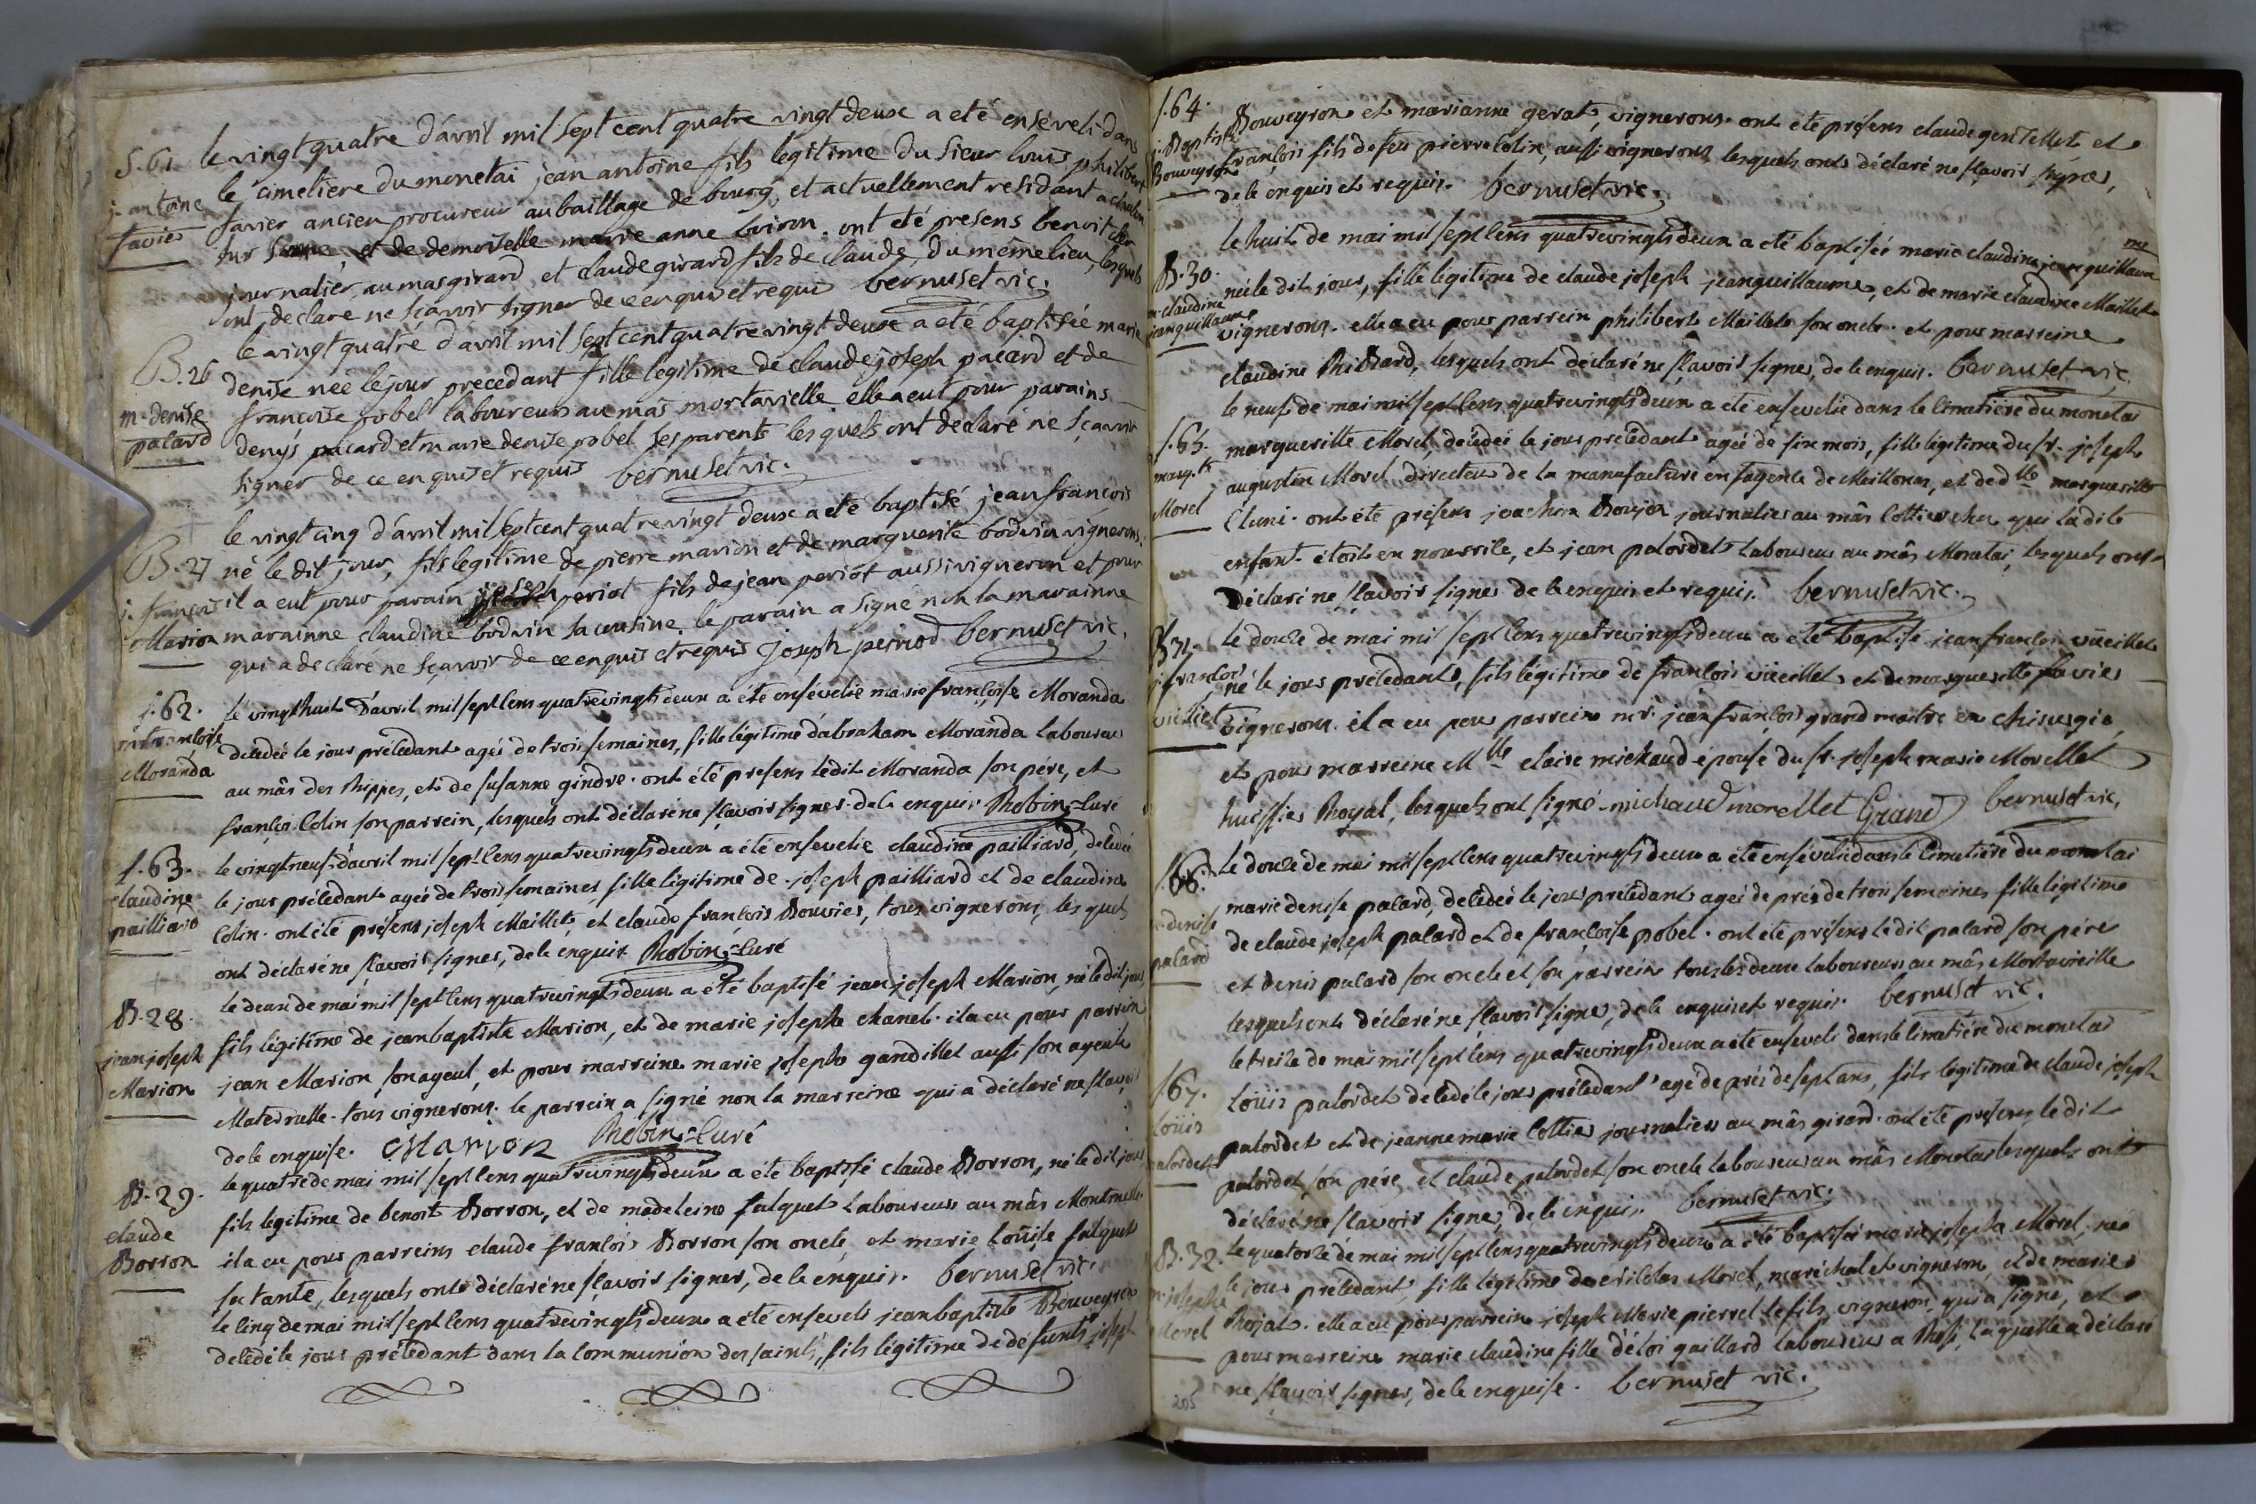 S. 61
j. antoine
favier
le vingt quatre d'avril mil sept cent quatre vingt deux a eté enseveli dans
le cimetiere du monetai jean antoine fils legitime du Sieur louis philibert
favier ancien procureur au baillage de bourg, et actuellement residant a chalon
sur saone, et de demoiselle marie anne buiron. ont eté presens benoit
journalier au mas girard et claude girard fils de claude du même lieu, lesquels
ont declare ne sçavoir signer de ce enquis et requis bernuset vic.
B. 26
m. denise
pacard
le vingt quatre d'avril mil sept cent quatre vingt deux a eté baptisée marie
denise née le jour precedant fille legitime de claude joseph pacard et de
françoise pobel laboureurs au mas mortavielle. elle a eut pour parains
denys pacard et marie denise pobel ses parents lesquels ont declaré ne sçavoir
signer de ce enquis et requis bernuset vic.
B. 27
j. françois
Marion
le vingt cinq d'avril mil sept cent quatre vingt deux a eté baptisé jean françois
né le dit jour, fils legitime de pierre marion et de marguerite bodvin vignerons.
il a eut pour parain joseph periot fils de jean periot aussi vigneron et pour
marainne claudine bodvin sa cousine. le parain a signé non la marainne
qui a declaré ne sçavoir de ce enquis et requis joseph perriod bernuset vic.
s. 62.
m. françoise
Moranda
le vingt huit d'avril mil sept cens quatre vingts deux a été ensevelie marie françoise Moranda
décédée le jour précédant agée de trois semaines, fille légitime d'abraham Moranda laboureur
au mâs des Rippes, et de susanne gindre. ont été presens ledit Moranda son pere, et
françois Colin son parrein, lesquels ont déclaré ne sçavoir signer. de ce enquis Robin Curé
s. 63.
claudine
pailliard
le vingt neuf d'avril mil sept cens quatre vingts deux a été ensevelie claudine pailliard, décédée
le jour précédant agée de trois semaines, fille légitime de joseph pailliard et de claudine
Colin. ont été présens joseph Maillet, et claude françois Bouvier, tous vignerons, lesquels
ont déclaré ne sçavoir signer, de ce enquis. Robin Curé
B. 28.
jean joseph
Marion
le deux de mai mil sept cens quatre vingts deux a été baptisé jean joseph Marion, né le dit jour,
fils légitime de jean baptiste Marion, et de marie josephe chanel. il a eu pour parrein
jean Marion son ayeul, et pour marreine marie josephe gandillet aussi son ayeule
Maternelle. tous vignerons. le parrein a signé non la marreine qui a déclaré ne sçavoir
de ce enquise. Marion Robin Curé
B. 29.
claude
Borron
le quatre de mai mil sept cens quatre vingts deux a été baptisé claude Borron, né le dit jour
fils legitime de benoit Borron, et de madeleine falquet laboureurs au mâs
il a eu pour parreins claude françois Borron son oncle, et marie Louise falquet
sa tante, lesquels ont déclaré ne sçavoir signer, de ce enquis. bernuset vic.
le cinq de mai mil sept cens quatre vingts deux a été enseveli jean baptiste Bouveyron
décédé le jour précédant dans la communion des saints, fils légitime de défunts joseph
s. 64.
j. Baptiste
Bouveyron
Bouveyron et marianne gerat, vignerons. ont été présens claude gentellet et
françois fils de feu pierre Colin, aussi vignerons, lesquels ont déclaré ne sçavoir signer,
de ce enquis et requis. bernuset vic.
B. 30.
m. claudine
janguillaume
le huit de mai mil sept cens quatre vingts deux a été baptisée marie claudine jeanguillaume
née le dit jour, fille légitime de claude joseph jeanguillaume, et de marie claudine Maillet
vignerons. elle a eu pour parrein philibert Maillet son oncle. et pour marreine
claudine Ribard, lesquels ont déclaré ne sçavoir signer, de ce enquis. bernuset vic.
s. 65.
marg.te
Morel
le neuf de mai mil sept cens quatre vingts deux a été ensevelie dans le cimetière du monetai
marguerite Morel, décédée le jour précédant agée de six mois, fille légitime du sr. joseph
augustin Morel directeur de la manufacture en fayence de Meillonas, et de dlle marguerite
Cluni. ont été présens joachim Boujon journalier au mâs Cottier chez qui ladite
enfant étoit en nourrice, et jean palordet laboureur au mâs Monetai, lesquels ont
déclaré ne sçavoir signer de ce enquis et requis. bernuset vic.
B. 31.
j. françois
vieillet
le douze de mai mil sept cens quatre vingts deux a été baptisé jean françois vieillet
né le jour précédant, fils légitime de françois vieillet et de marguerite favier
vignerons. il a eu pour parrein mr. jean françois grand maitre en chirurgie,
et pour marreine Mlle claire michaud épouse du sr. joseph marie Morellet
huissier Royal, lesquels ont signé. michaud morellet Grand bernuset vic.
s. 66.
m. denise
palard
le douze de mai mil sept cens quatre vingts deux a été ensevelie dans le cimetière du monetai
marie denise pacard, décédée le jour précédant agée de près de trois semaines, fille légitime
de claude joseph pacard et de françoise pobel. ont été présens ledit pacard son père
et denis pacard son oncle et son parrein tous les deux laboureurs au mâs Mortavieille
lesquels ont déclaré ne sçavoir signer, de ce enquis et requis. bernuset vic.
s. 67.
Loüis
palordet
le treize de mai mil sept cens quatre vingts deux a été enseveli dans le cimetière du monetai
Loüis palordet décédé le jour précédant agé de près de sept ans, fils légitime de claude joseph
palordet et de jeanne marie Cottier journaliers au mâs girard. ont été présens ledit
palordet son père, et claude palordet son oncle laboureur au mâs Monetai lesquels ont
déclaré ne sçavoir signer, de ce enquis. bernuset vic.
B. 32.
m. josephe
Morel
le quatorze de mai mil sept cens quatre vingts deux a été baptisée marie josephe Morel, née
le jour précédant, fille légitime de Morel, maréchal et vigneron, et de marie
elle a eu pour parrein joseph Marie pierrel le fils, vigneron, qui a signé, et
pour marreine marie claudine fille d'éloi gaillard laboureur a laquelle a déclaré
ne sçavoir signer, de ce enquise. bernuset vic.
205